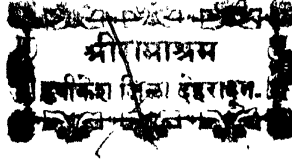 श्रीरामाश्रम
हृषीकेश जिला देहरादून.